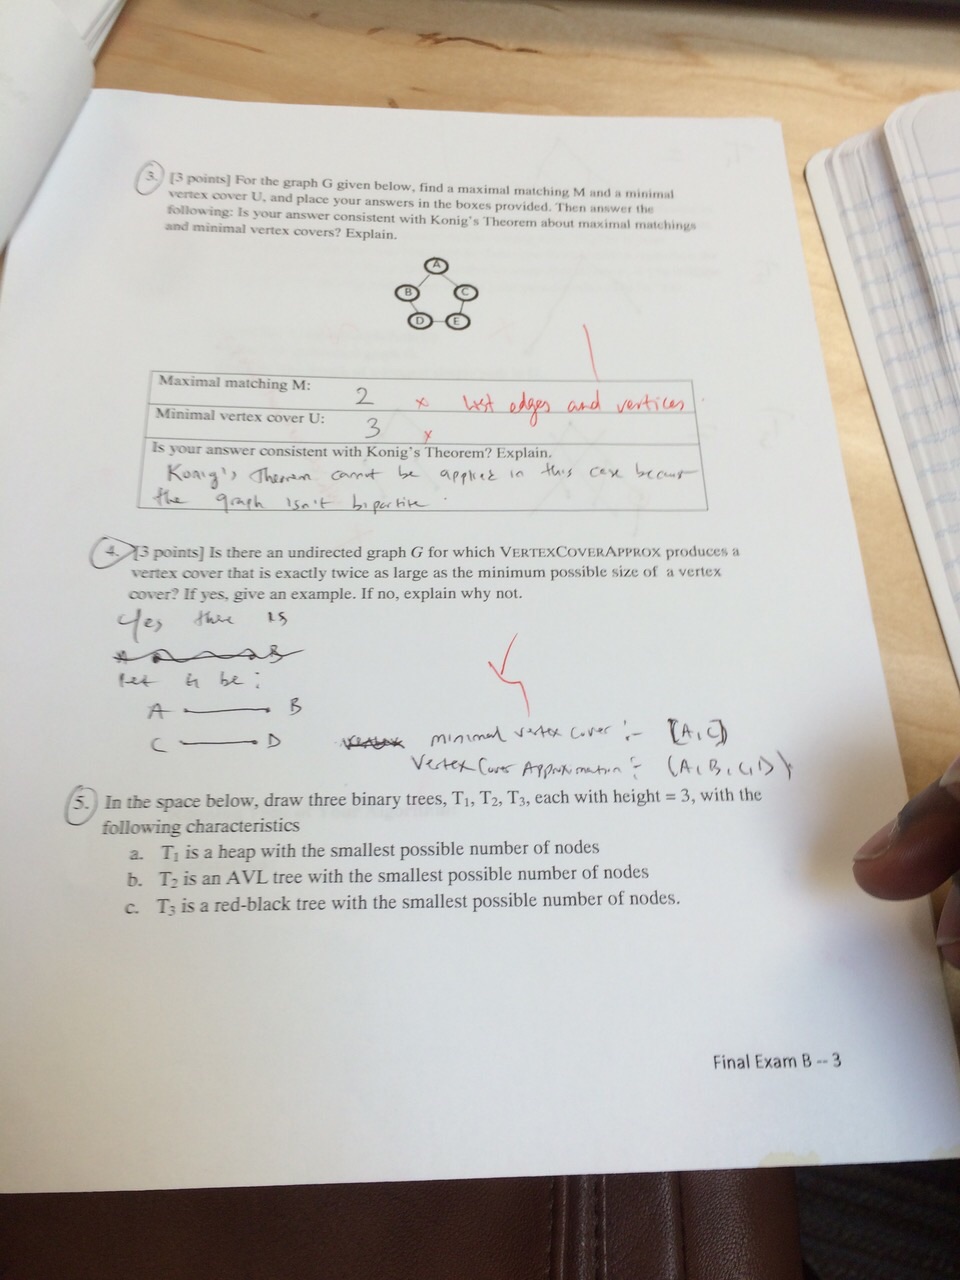 3. [3 points] For the graph G given below, find a maximal matching M and a minimal
vertex cover U, and place your answers in the boxes provided. Then answer the
following: Is your answer consistent with Konig's Theorem about maximal matchings
and minimal vertex covers? Explain.
A
B C
D E
Maximal matching M: 2 x list edges and vertices
Minimal vertex cover U: 3 x
Is your answer consistent with Konig's Theorem? Explain.
Konig's Theorem cannot be applied in this case because
the graph isn't bipartite.
4. [3 points] Is there an undirected graph G for which VERTEXCOVERAPPROX produces a
vertex cover that is exactly twice as large as the minimum possible size of a vertex
cover? If yes, give an example. If no, explain why not.
Yes there is
let G be:
A B
C D minimal vertex cover :- {A,C}
Vertex Cover Approximation :- {A,B,C,D}
5. In the space below, draw three binary trees, T1, T2, T3, each with height = 3, with the
following characteristics
a. T1 is a heap with the smallest possible number of nodes
b. T2 is an AVL tree with the smallest possible number of nodes
c. T3 is a red-black tree with the smallest possible number of nodes.
Final Exam B -- 3